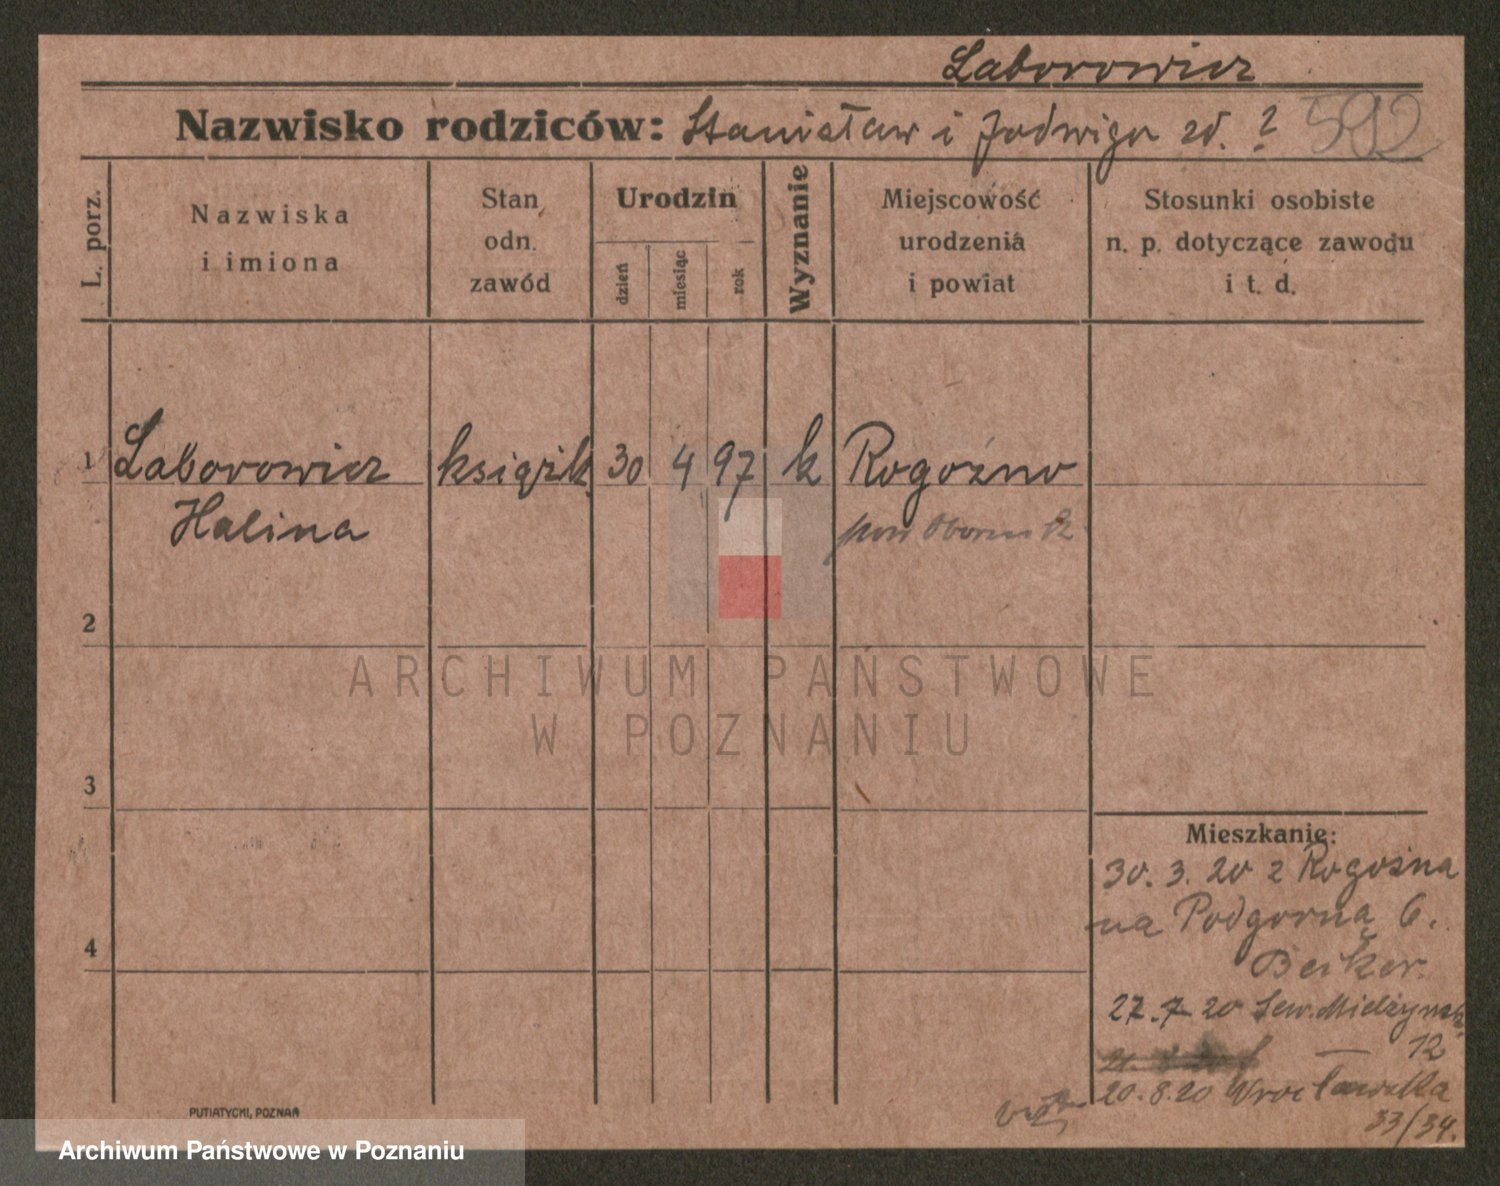 Laborowicz
Nazwisko rodziców: Stanisław i Jadwiga zd. ? 592
L. porz.
Nazwiska
i imiona
Stan
odn.
zawód
Urodzin
dzień
miesiąc
rok
Wyznanie
Miejscowość
urodzenia
i powiat
Stosunki osobiste
n. p. dotyczące zawodu
i t. d.
1 Laborowicz książk. 30 4 97 k Rogoźno
Halina
2
3
4
Mieszkanie:
30. 3. 20 z Rogoźna
na Podgórną 6.
Beiker.
27. 7 20 Sew. Mielżyńsk.
12
20. 8. 20 Wrocławska
33/34.
PUTIATYCKI, POZNAŃ
ARCHIWUM PAŃSTWOWE
W POZNANIU
Archiwum Państwowe w Poznaniu